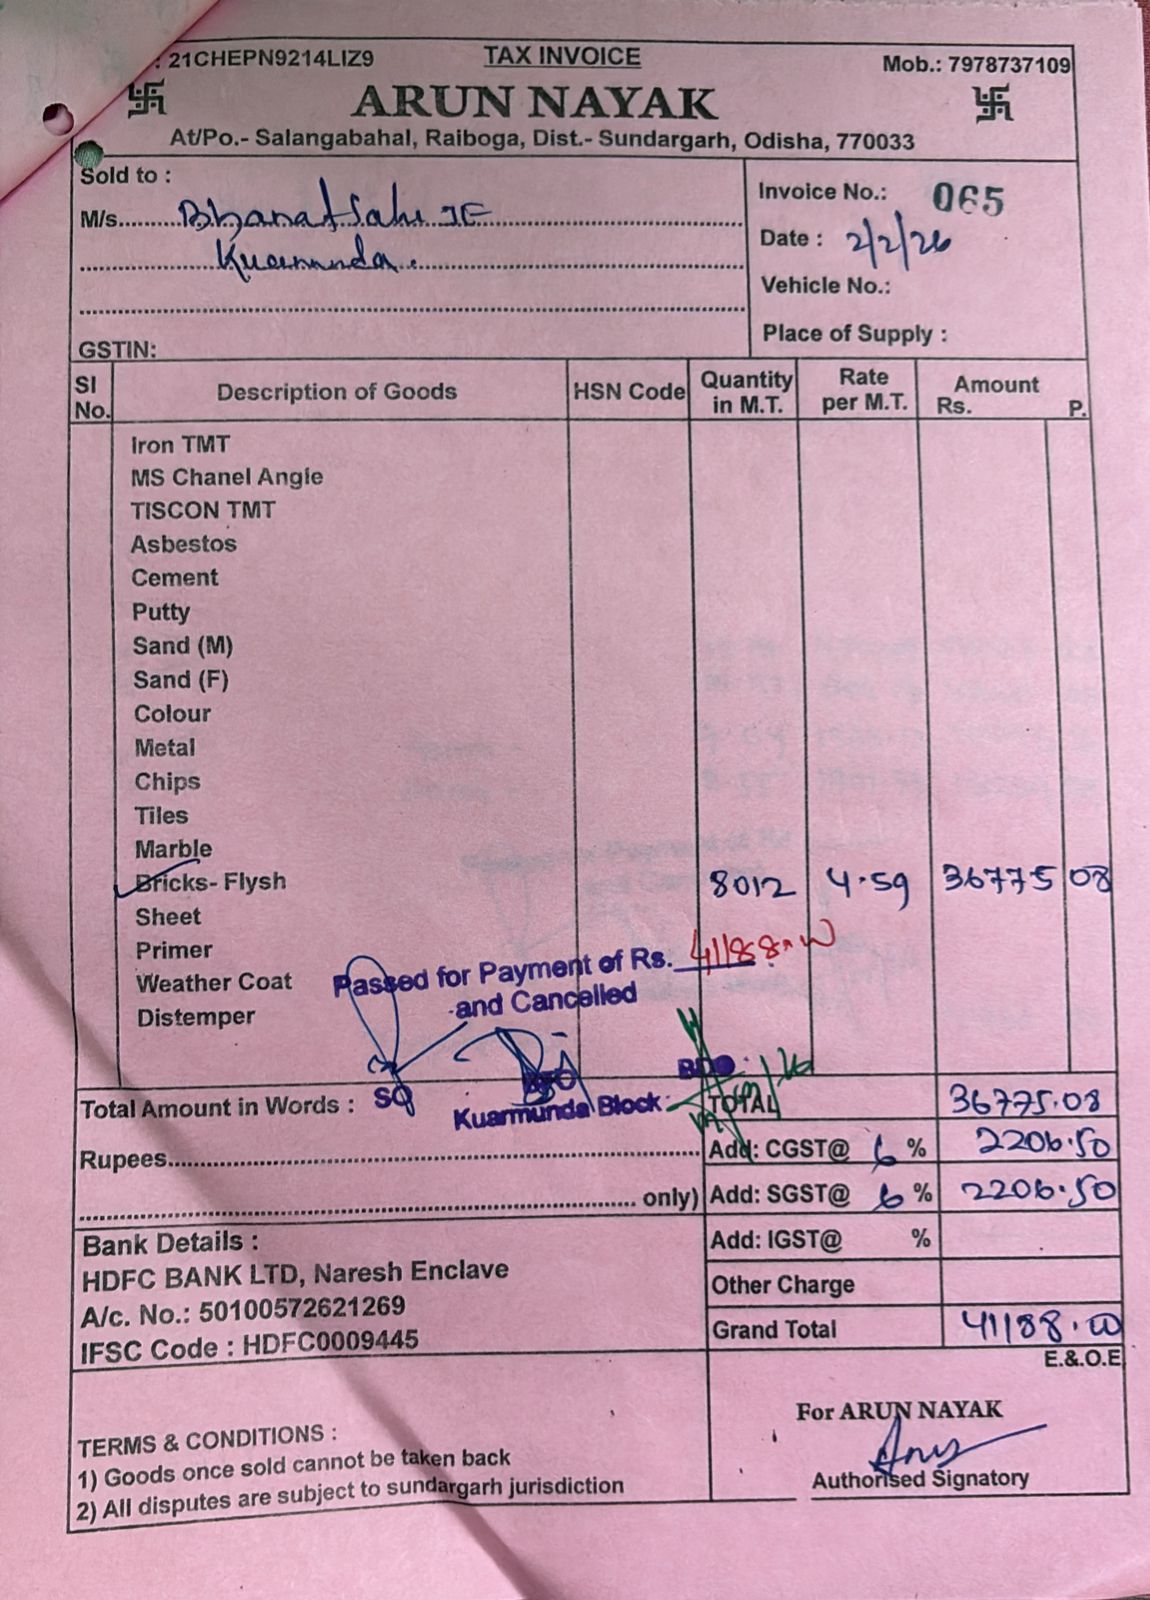 : 21CHEPN9214LIZ9
TAX INVOICE
Mob.: 7978737109
ARUN NAYAK
At/Po.- Salangabahal, Raiboga, Dist.- Sundargarh, Odisha, 770033
Sold to :
M/s. Bhanat Sahu JE
Kuarmunda.
GSTIN:
Invoice No.: 065
Date : 2/2/26
Vehicle No.:
Place of Supply :
SI No. Description of Goods HSN Code Quantity in M.T. Rate per M.T. Amount Rs. P.
Iron TMT
MS Chanel Angle
TISCON TMT
Asbestos
Cement
Putty
Sand (M)
Sand (F)
Colour
Metal
Chips
Tiles
Marble
Bricks- Flysh 8012 4.59 36775 08
Sheet
Primer
Weather Coat
Distemper
Passed for Payment of Rs. 41188.00
and Cancelled
SO
BDO
Kuarmunda Block
Total Amount in Words :
Rupees
only)
TOTAL 36775.08
Add: CGST@ 6 % 2206.50
Add: SGST@ 6 % 2206.50
Add: IGST@ %
Other Charge
Grand Total 41188.00
E.&.O.E
Bank Details :
HDFC BANK LTD, Naresh Enclave
A/c. No.: 50100572621269
IFSC Code : HDFC0009445
TERMS & CONDITIONS :
1) Goods once sold cannot be taken back
2) All disputes are subject to sundargarh jurisdiction
For ARUN NAYAK
Authorised Signatory